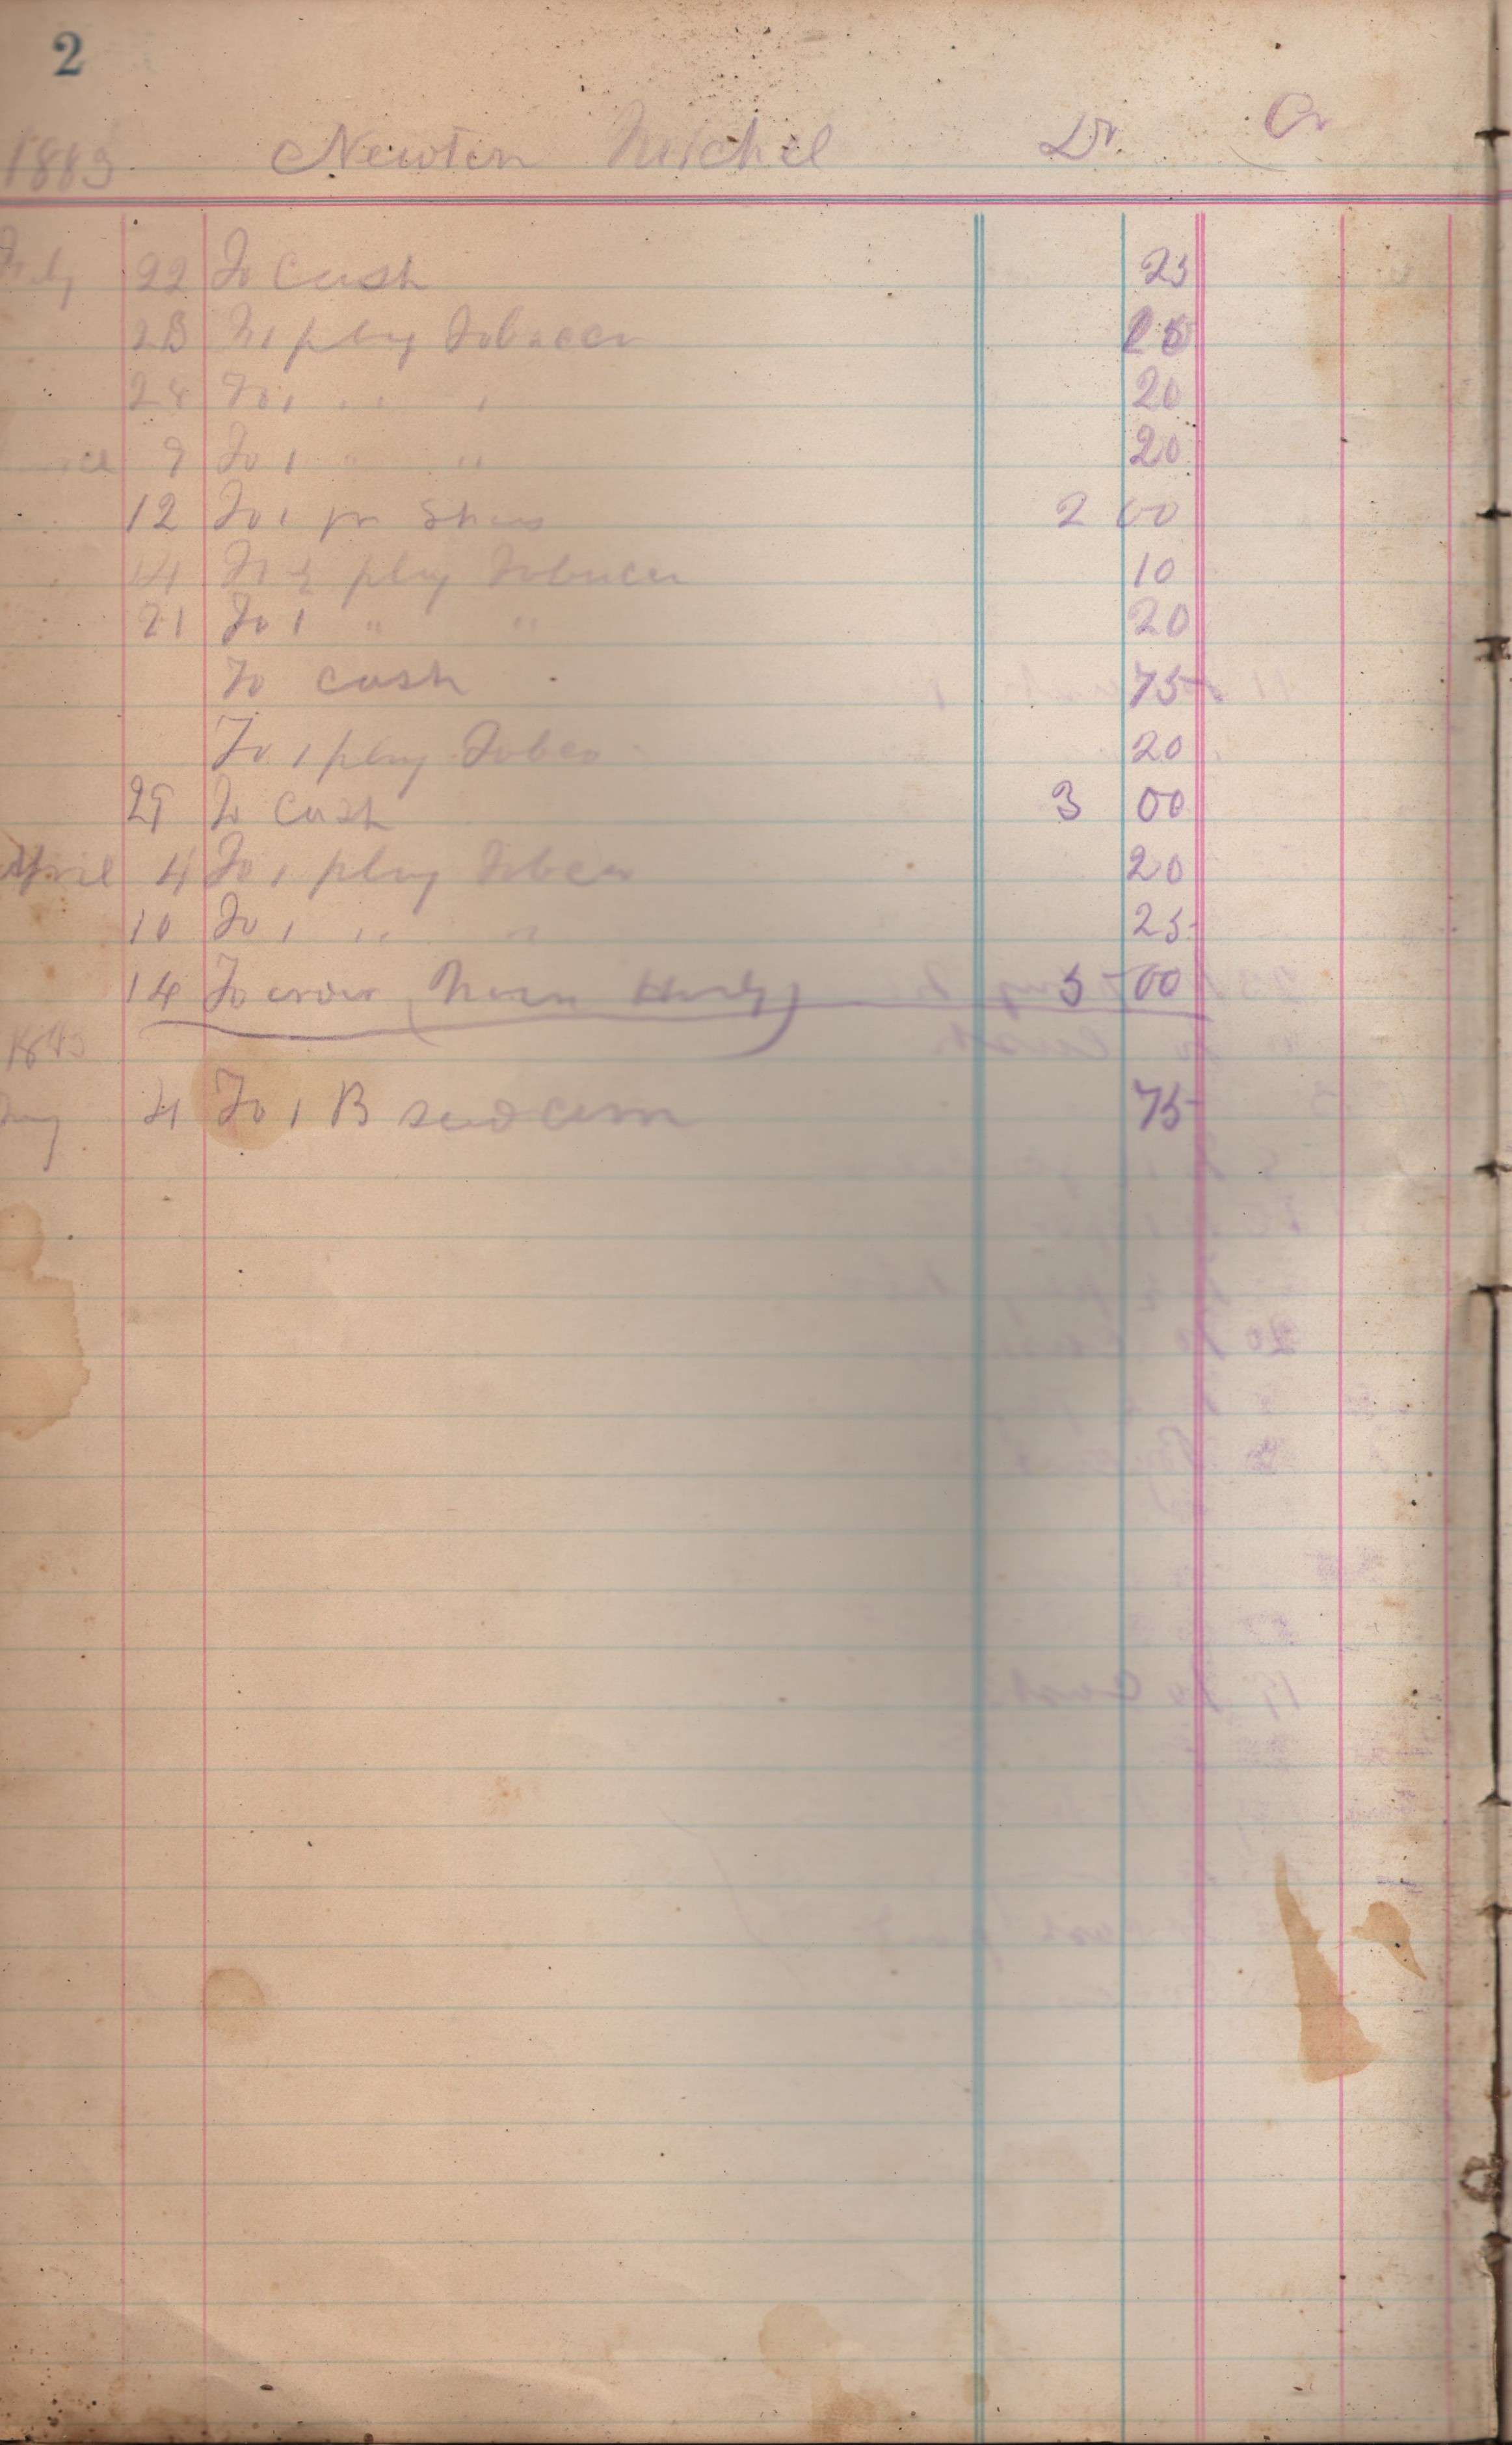 2
1883 Newton Michel Dr. Cr
22 To Cash 25
23 To 1 plug Tobacco
28 To 1 " " 20
9 To 1 " " 20
12 To 1 pr Shoes 2 00
14 To ½ plug Tobacco 10
21 To 1 " " 20
To cash 75
To 1 plug Tobco 20
29 To Cash 3 00
April 4 To 1 plug Tobco 20
10 To 1 " " 25
14 To order 5 00
4 To 1 B seed corn 75